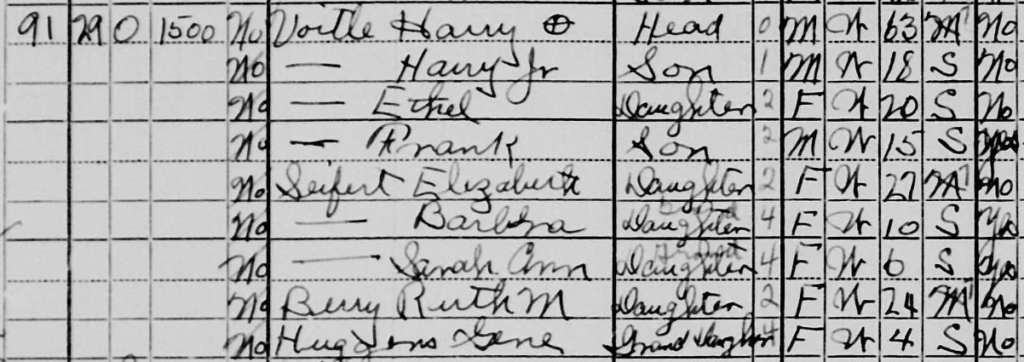 91 29 0 1500 No Voitle Harry ⊕ Head 0 M W 63 M No
No — Harry Jr Son 1 M W 18 S No
No — Ethel Daughter 2 F W 20 S No
No — Frank Son 2 M W 15 S Yes
No Seifert Elizabeth Daughter 2 F W 27 M No
No — Barbra Grand Daughter 4 F W 10 S Yes
No — Sarah Ann Grand Daughter 4 F W 6 S Yes
No Berry Ruth M Daughter 2 F W 24 M No
No Gene Grand Daughter 4 F W 4 S No